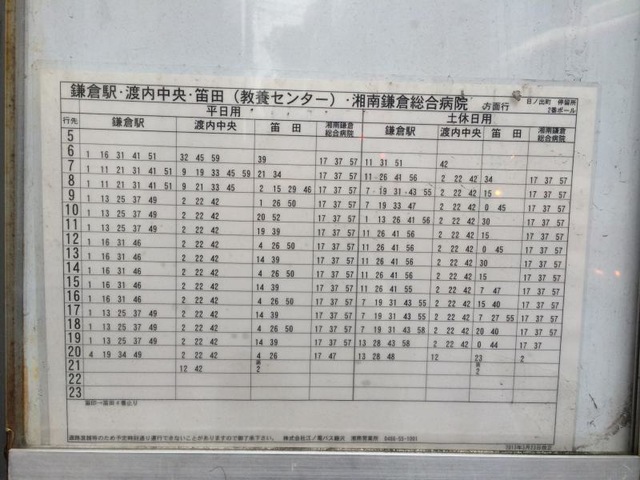 鎌倉駅・渡内中央・笛田（教養センター）・湘南鎌倉総合病院 方面行 日ノ出町 停留所
2番ポール
平日用 土休日用
行先 鎌倉駅 渡内中央 笛 田 湘南鎌倉総合病院 鎌倉駅 渡内中央 笛 田 湘南鎌倉総合病院
5
6 1 16 31 41 51 32 45 59 39 17 37 57 11 31 51 42
7 1 11 21 31 41 51 9 19 33 45 59 21 34 17 37 57 11 26 41 56 2 22 42 34 17 37 57
8 1 11 21 31 41 51 9 21 33 45 2 15 29 46 17 37 57 7 19 31 43 55 2 22 42 15 17 37 57
9 1 13 25 37 49 2 22 42 1 26 50 17 37 57 7 19 33 47 2 22 42 0 45 17 37 57
10 1 13 25 37 49 2 22 42 20 52 17 37 57 1 13 26 41 56 2 22 42 30 17 37 57
11 1 13 25 37 49 2 22 42 19 39 17 37 57 11 26 41 56 2 22 42 15 17 37 57
12 1 16 31 46 2 22 42 4 26 50 17 37 57 11 26 41 56 2 22 42 0 45 17 37 57
13 1 16 31 46 2 22 42 14 39 17 37 57 11 26 41 56 2 22 42 30 17 37 57
14 1 16 31 46 2 22 42 4 26 50 17 37 57 11 26 41 56 2 22 42 15 17 37 57
15 1 16 31 46 2 22 42 14 39 17 37 57 11 26 41 56 2 22 42 7 47 17 37 57
16 1 16 31 46 2 22 42 4 26 50 17 37 57 7 19 31 43 55 2 22 42 15 40 17 37 57
17 1 13 25 37 49 2 22 42 14 39 17 37 57 7 19 31 43 55 2 22 42 7 27 55 17 37 57
18 1 13 25 37 49 2 22 42 4 26 50 17 37 57 7 19 31 43 58 2 22 42 20 40 17 37 57
19 1 13 25 37 49 2 22 42 14 39 17 37 57 13 28 43 58 2 22 42 0 44 17 37
20 4 19 34 49 2 22 42 4 26 17 47 13 28 48 12 23 2
21 12 42 2 2
22
23
道路混雑等のため予定時刻通り運行できないことがありますので御了承下さい。 株式会社江ノ電バス藤沢 湘南営業所